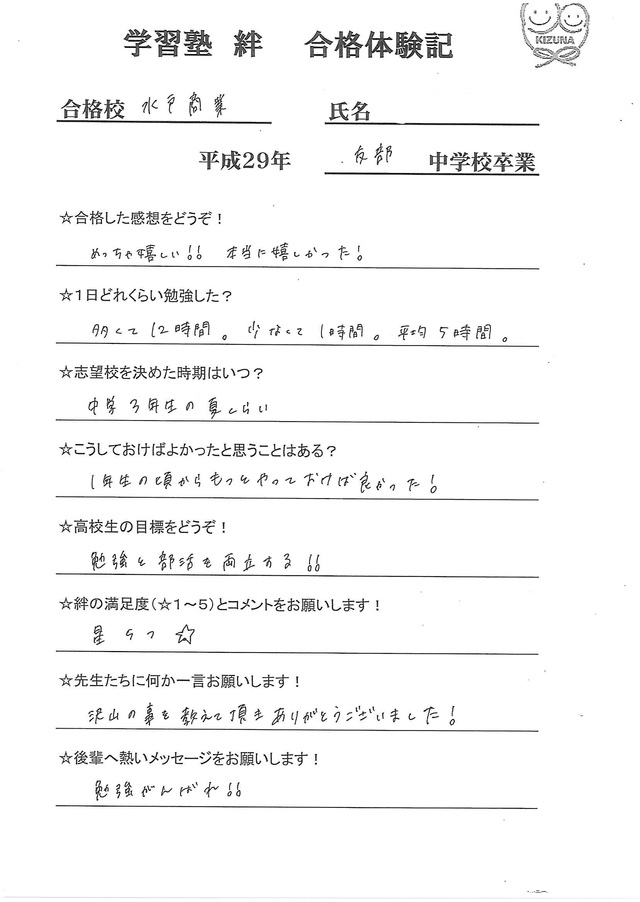 学習塾 絆 合格体験記
KIZUNA
合格校 水戸商業 氏名
平成29年 友部 中学校卒業
☆合格した感想をどうぞ！
めっちゃ嬉しい!! 本当に嬉しかった!
☆1日どれくらい勉強した？
多くて12時間。少なくて1時間。平均5時間。
☆志望校を決めた時期はいつ？
中学3年生の夏くらい
☆こうしておけばよかったと思うことはある？
1年生の頃からもっとやっておけば良かった!
☆高校生の目標をどうぞ！
勉強と部活を両立する!!
☆絆の満足度（☆1～5）とコメントをお願いします！
星5つ☆
☆先生たちに何か一言お願いします！
沢山の事を教えて頂きありがとうございました!
☆後輩へ熱いメッセージをお願いします！
勉強がんばれ!!